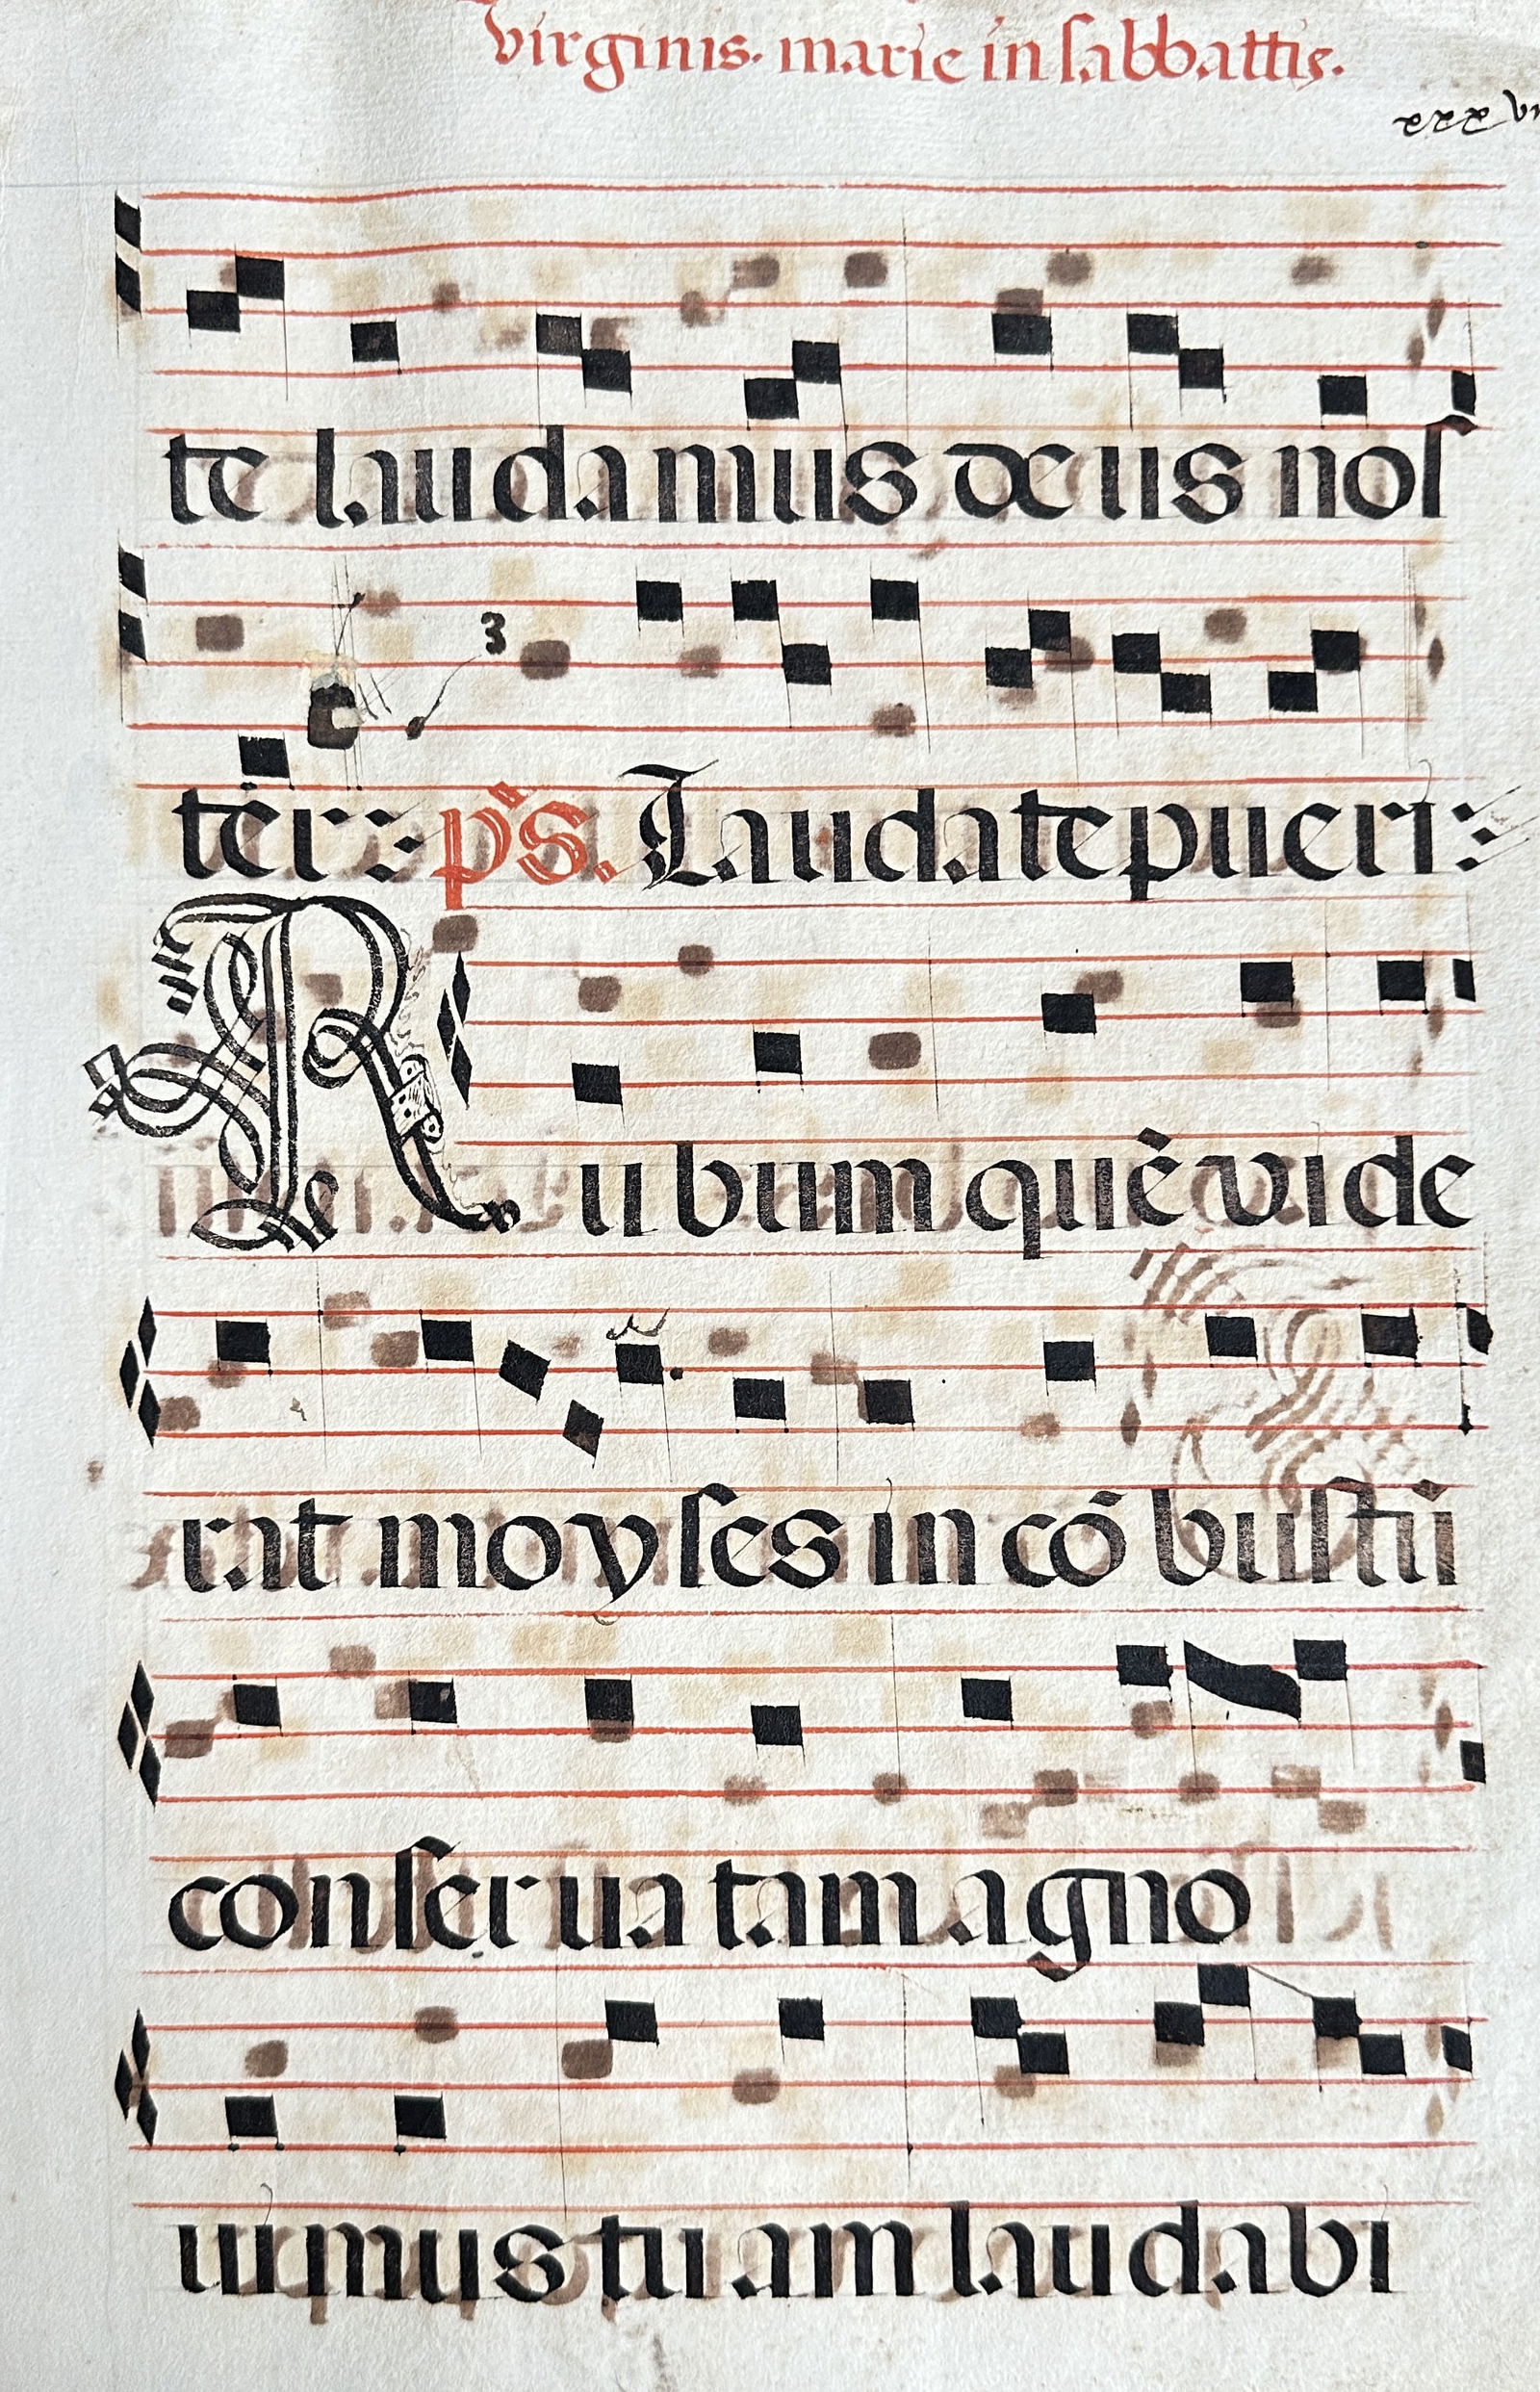 virginis. marie in sabbattis.
xxx vii
te laudamus deus noſ
3
tèr: ps. Laudate pueri:
Rubum quē vide
rat moyſes in cō buſtū
conſer ua tam agno
uimus tuam laudabi